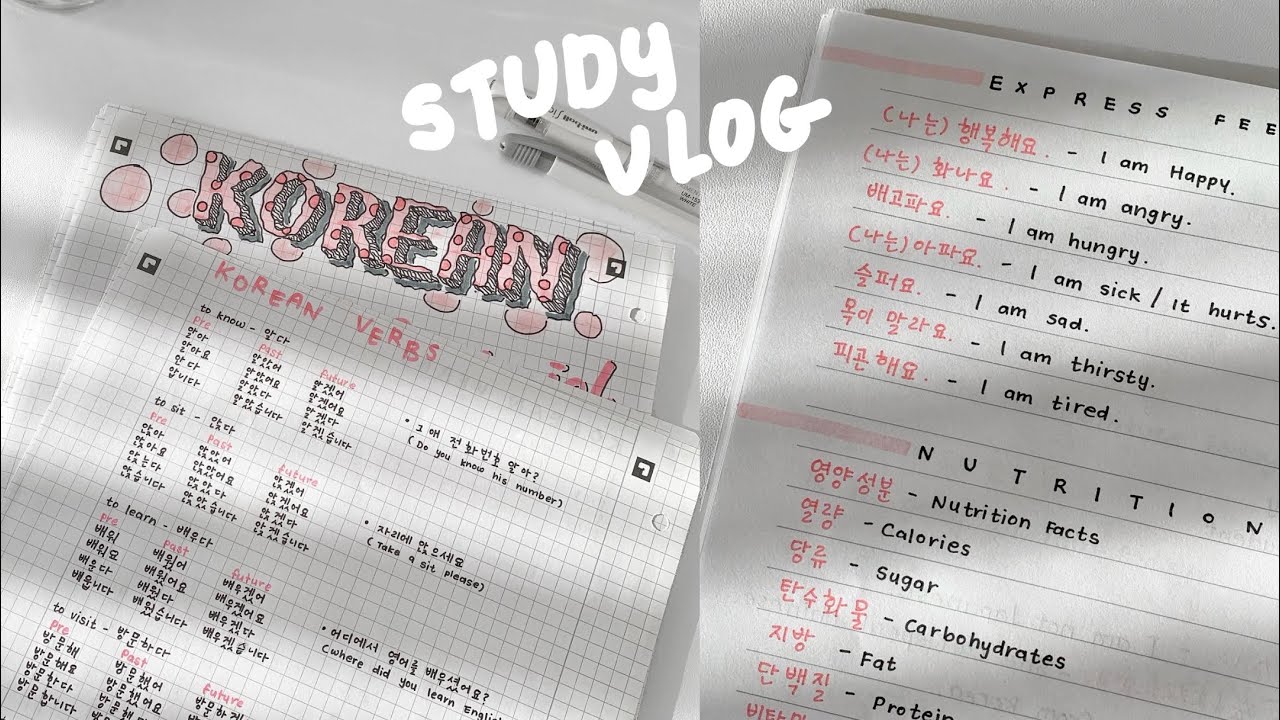 STUDY
VLOG
KOREAN
KOREAN VERBS
to know - 알다
pre
알아
알아요
안다
압니다
past
알았어
알았어요
알았다
알았습니다
future
알겠어
알겠어요
알겠다
알겠습니다
• 그 애 전화번호 알아?
(Do you know his number)
to sit - 앉다
pre
앉아
앉아요
앉는다
앉습니다
past
앉았어
앉았어요
앉았다
앉았습니다
future
앉겠어
앉겠어요
앉겠다
앉겠습니다
• 자리에 앉으세요
(Take a sit please)
to learn - 배우다
pre
배워
배워요
배운다
배웁니다
past
배웠어
배웠어요
배웠다
배웠습니다
future
배우겠어
배우겠어요
배우겠다
배우겠습니다
• 어디에서 영어를 배우셨어요?
(where did you learn English
to visit - 방문하다
pre
방문해
방문해요
방문한다
방문합니다
past
방문했어
방문했어요
방문했다
future
방문하겠
uni-ball
UM-153
WHITE
EXPRESS FEE
(나는) 행복해요. - I am Happy.
(나는) 화나요. - I am angry.
배고파요. - I am hungry.
(나는) 아파요. - I am sick / It hurts.
슬퍼요. - I am sad.
목이 말라요. - I am thirsty.
피곤해요. - I am tired.
NUTRITION
영양성분 - Nutrition Facts
열량 - Calories
당류 - Sugar
탄수화물 - Carbohydrates
지방 - Fat
단백질 - Protein